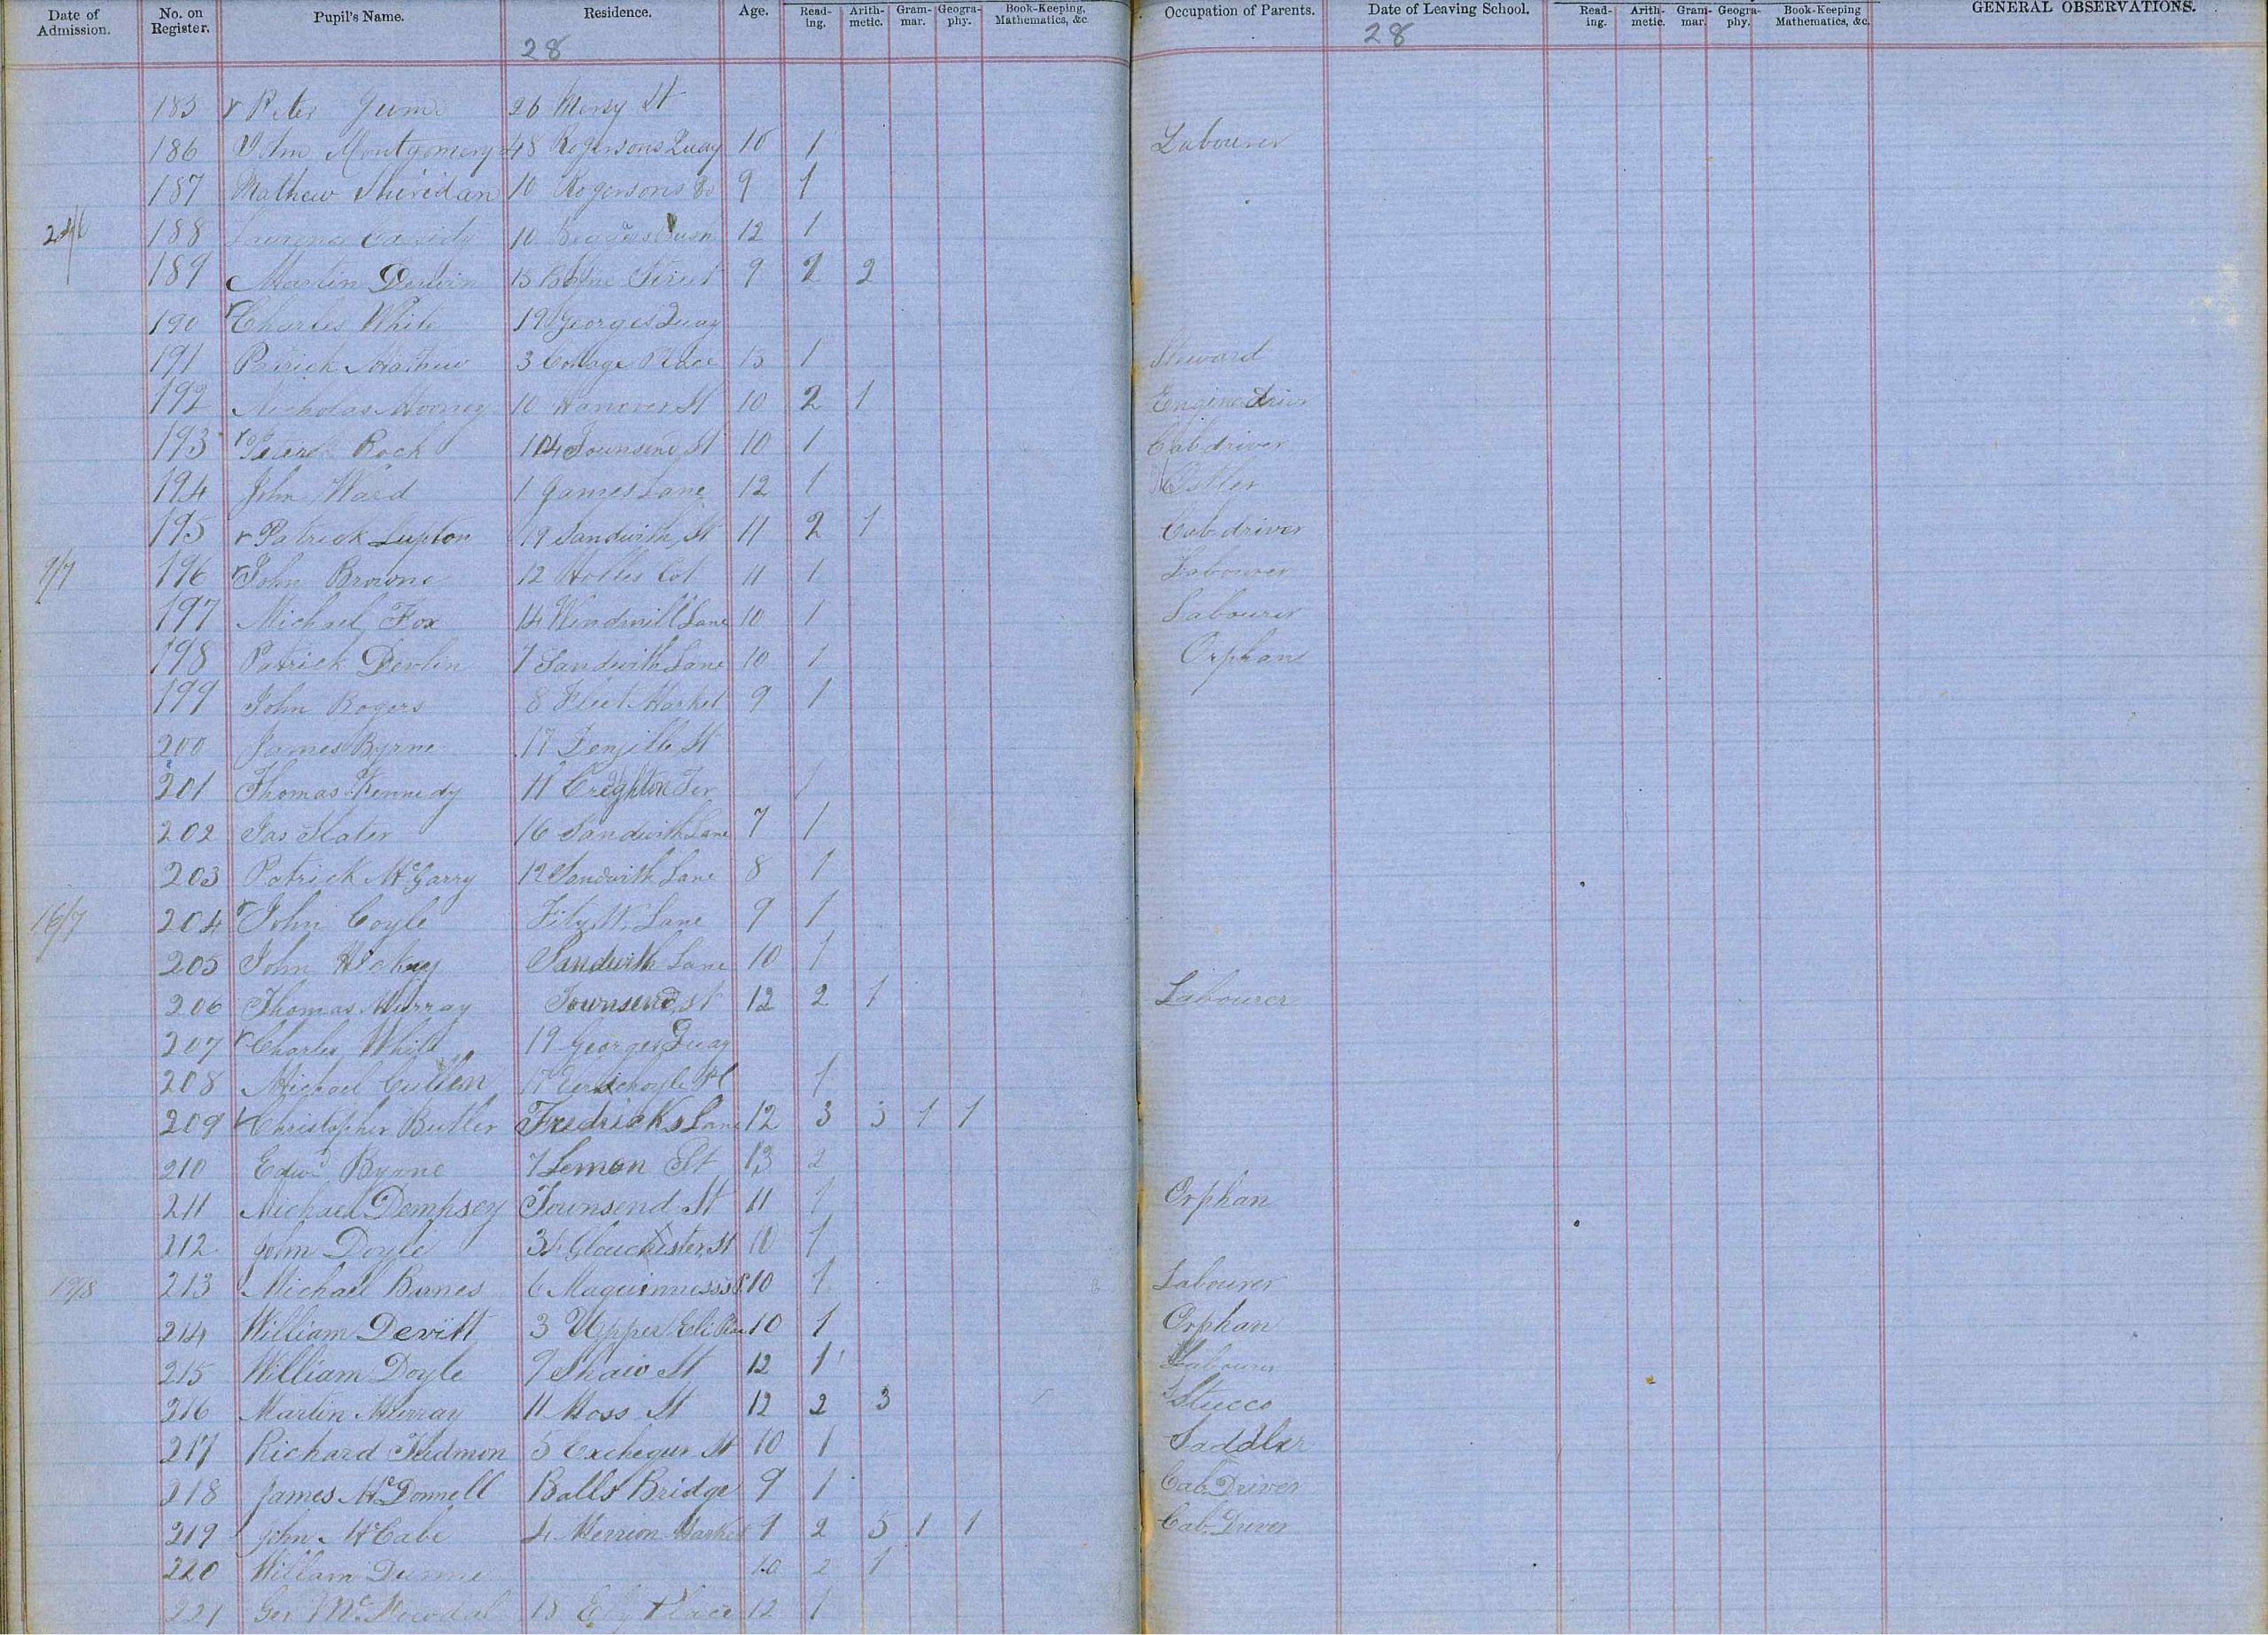 Date of Admission. No. on Register. Pupil's Name. Residence. Age. Read-ing. Arith-metic. Gram-mar. Geogra-phy. Book-Keeping, Mathematics, &c. Occupation of Parents. Date of Leaving School. Read-ing. Arith-metic. Gram-mar. Geogra-phy. Book-Keeping Mathematics, &c. GENERAL OBSERVATIONS.
28 28
185 r Peter 26 St
186 John Montgomery 48 Rogersons Quay 10 1 Labourer
187 Mathew Sheridan 10 Rogersons Do 9 1
24/6 188 Laurence Cassidy 10 Beggars Bush 12 1
189 Martin 15 Boyne Street 9 2 2
190 r Charles White 19 Georges Quay
191 Patrick Mathew 3 Cottage Place 13 1 Steward
192 Nicholas Mooney 10 Hanover St 10 2 1 Engine driver
193 r Peter Rock 104 Townsend St 10 1 Cab driver
194 John Ward 1 James Lane 12 1 Ostler
195 r Patrick Lupton 19 Sandwith St 11 2 1 Cab driver
9/7 196 r John Browne 12 Holles Cot 11 1 Labourer
197 Michael Fox 14 Windmill Lane 10 1 Labourer
198 Patrick Devlin 7 Sandwith Lane 10 1 Orphan
199 John Rogers 8 Fleet Market 9 1
200 James Byrne 17 Denzille St
201 Thomas Kennedy 11 Creighton Ter 1
202 Jas Slater 16 Sandwith Lane 7 1
203 Patrick McGarry 12 Sandwith Lane 8 1
16/7 204 r John Coyle Fitz W. Lane 9 1
205 John Hickey Sandwith Lane 10 1
206 Thomas Murray Townsend St 12 2 1 Labourer
207 r Charles White 19 Georges Quay
208 Michael Cullen 17 Pl 1
209 r Christopher Butler Fredricks Lane 12 3 3 1 1
210 Edwd Byrne 7 Lemon St 13 2
211 Michael Dempsey Townsend St 11 1 Orphan
212 John Doyle Glouchister St 10 1
213 Michael Barnes 6 10 1 Labourer
214 William Devitt 3 Upper 10 1 Orphan
215 William Doyle 9 Shaw St 12 1 Labourer
216 Martin Murray 11 Moss St 12 2 3 Stucco
217 Richard Kidmon 5 Exchequr St 10 1 Saddler
218 James McDonnell Balls Bridge 9 1 Cab Driver
219 John McCabe 4 Merrion Market 1 2 5 1 1 Cab Driver
220 William Dunne 10 2 1
221 18 Ely Place 12 1